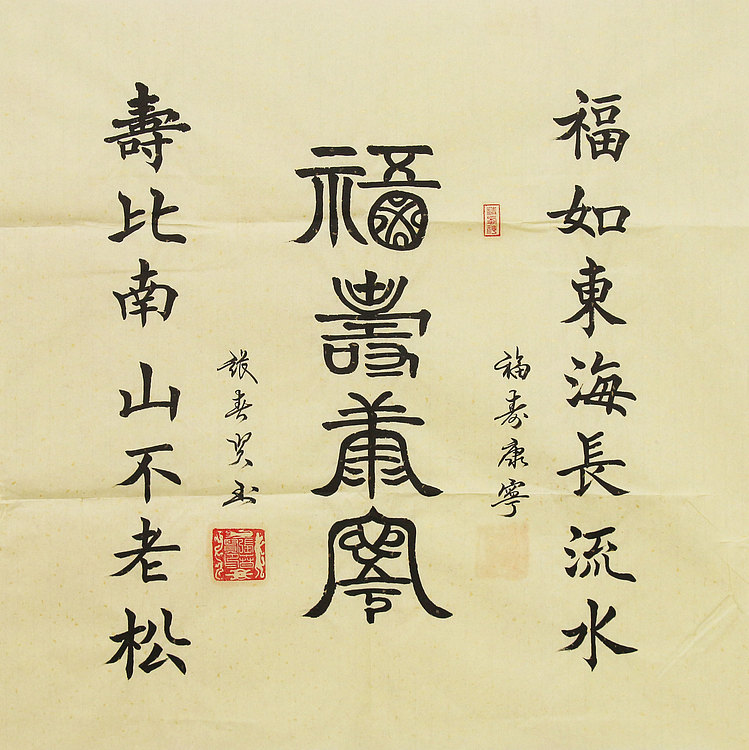 福如東海長流水
福壽康寧
福壽康寧
張春賢書
壽比南山不老松